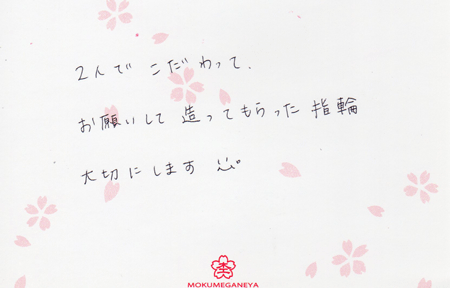 2人で こだわって、
お願いして 造ってもらった 指輪
大切にします
MOKUMEGANEYA